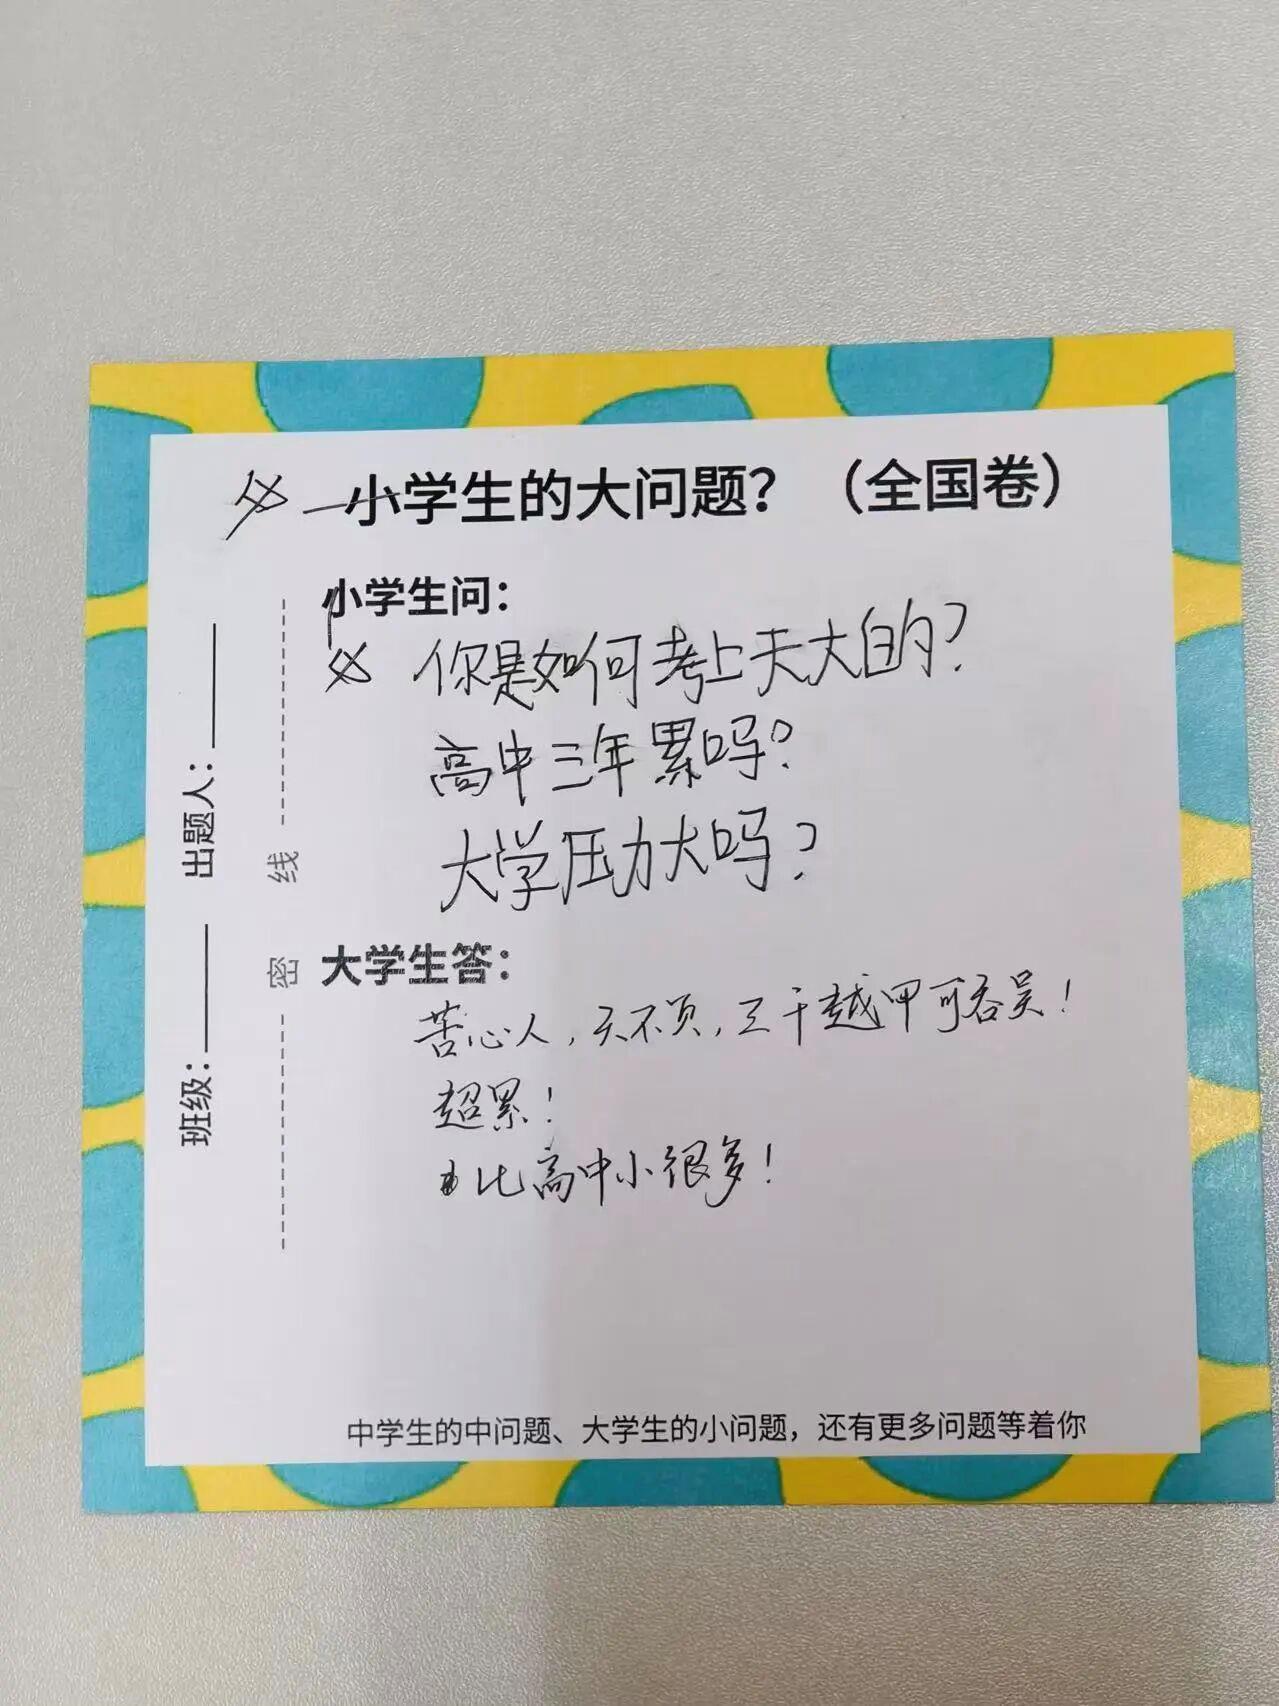 小学生的大问题？（全国卷）
小学生问：
你是如何考上天大的？
高中三年累吗？
大学压力大吗？
大学生答：
苦心人，天不负，三千越甲可吞吴！
超累！
比高中小很多！
班级： 出题人：
密 线
中学生的中问题、大学生的小问题，还有更多问题等着你